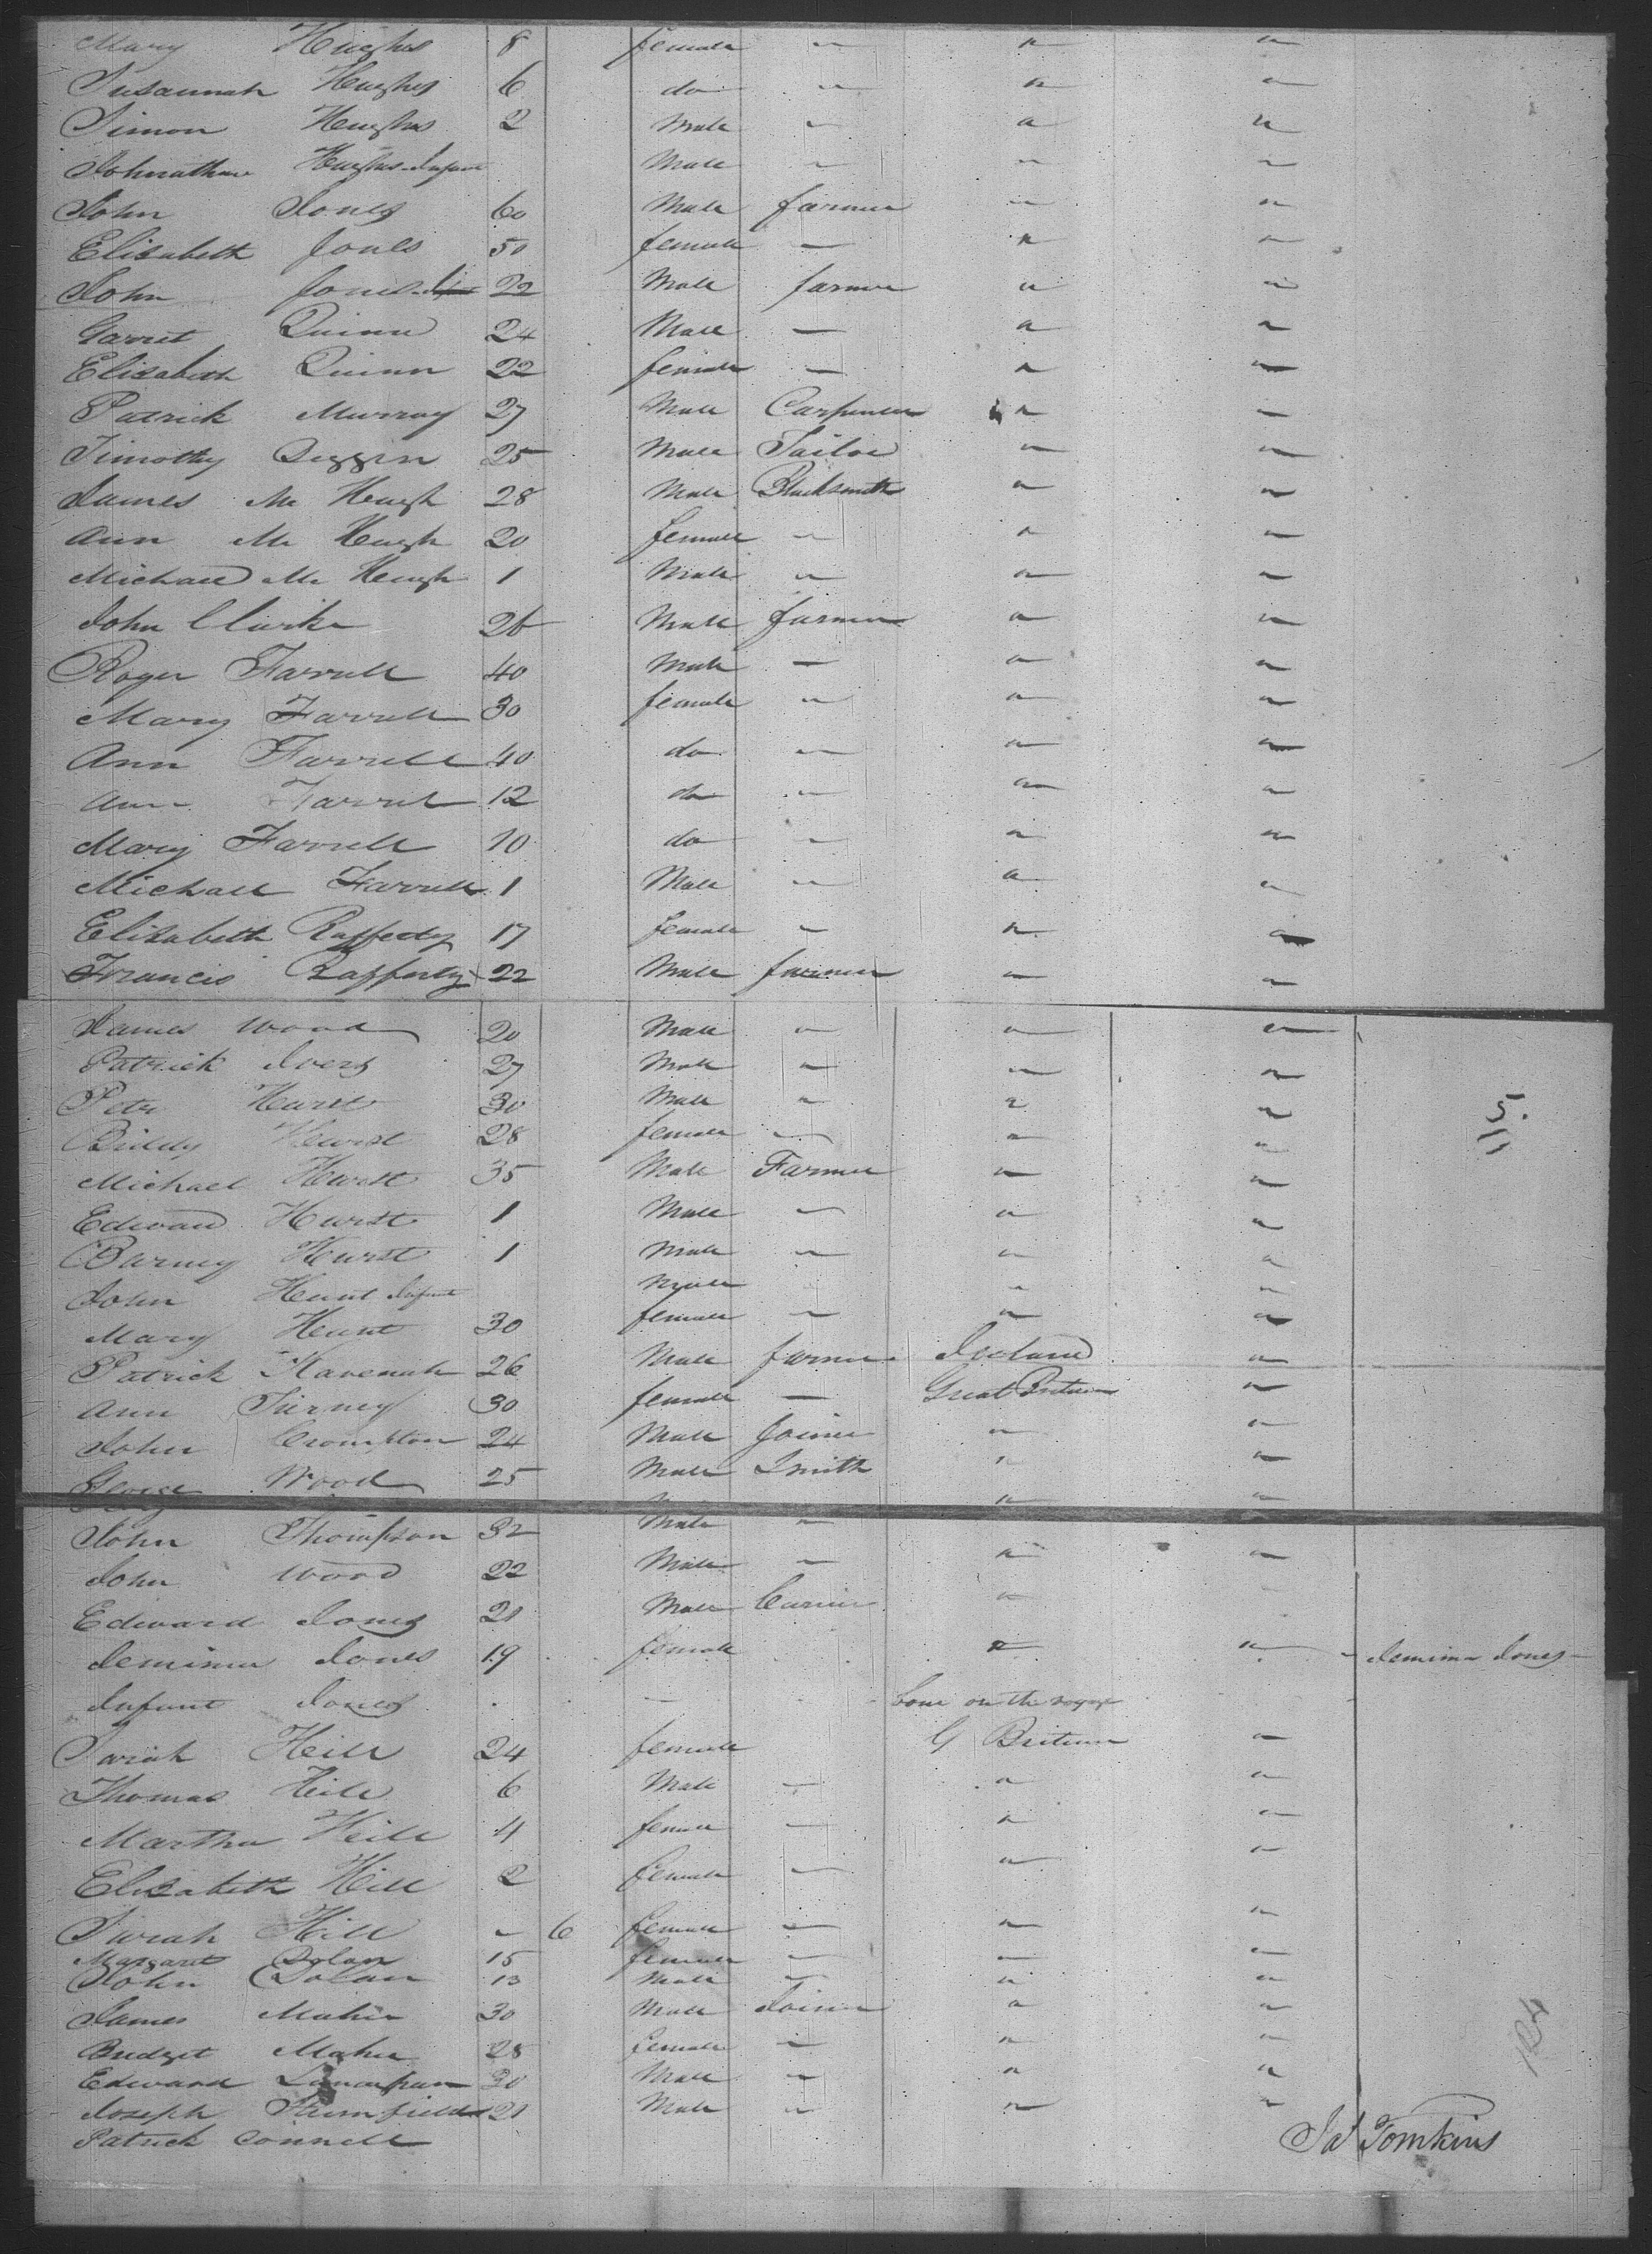 Mary Hughes 8 female " " "
Susannah Hughes 6 do " " "
Simon Hughes 2 Male " " "
Johnathan Hughes Infant Male " " "
John Jones 60 Male farmer " "
Elizabeth Jones 50 female — " "
John Jones 22 Male farmer " "
Garret Quinn 24 Male — " "
Elizabeth Quinn 22 female — " "
Patrick Murray 27 Male Carpenter " "
Timothy 25 Male Tailor " "
James Mc Hugh 28 Male Blacksmith " "
Ann Mc Hugh 20 female " " "
Michael Mc Hugh 1 Male " " "
John Clarke 26 Male farmer " "
Roger Farrell 40 Male — " "
Mary Farrell 30 female " " "
Ann Farrell 40 do " " "
Ann Farrell 12 do " " "
Mary Farrell 10 do " " "
Michael Farrell 1 Male " " "
Elizabeth Rafferty 17 female " " "
Francis Rafferty 22 Male farmer " "
James Wood 20 Male " " "
Patrick Ivers 27 Male " " "
Peter Hurst 30 Male " " " 5.
Biddy Hurst 28 female " " "
Michael Hurst 35 Male Farmer " "
Edward Hurst 1 Male " " "
Barney Hurst 1 Male " " "
John Hunt Infant Male " "
Mary Hunt 30 female " " "
Patrick Kavenah 26 Male farmer Ireland "
Ann Tierney 30 female — Great Britain "
John Crompton 24 Male Joiner " "
George Wood 25 Male Smith " "
John Thompson 32 Male " " "
John Wood 22 Male " " "
Edward Jones 21 Male Currier "
Jemima Jones 19 female " " Jemima Jones
Infant Jones — born on the voyage
Sarah Hill 24 female G Britain "
Thomas Hill 6 Male " " "
Martha Hill 4 female " " "
Elizabeth Hill 2 female " " "
Sarah Hill " 6 female " " "
Margaret Dolan 15 female " " "
John Dolan 13 Male " " "
James Maher 30 Male Joiner " "
Bridget Maher 28 female " " "
Edward 30 Male " " "
Joseph 21 Male " " "
Patrick Connell
Jas Tomkins